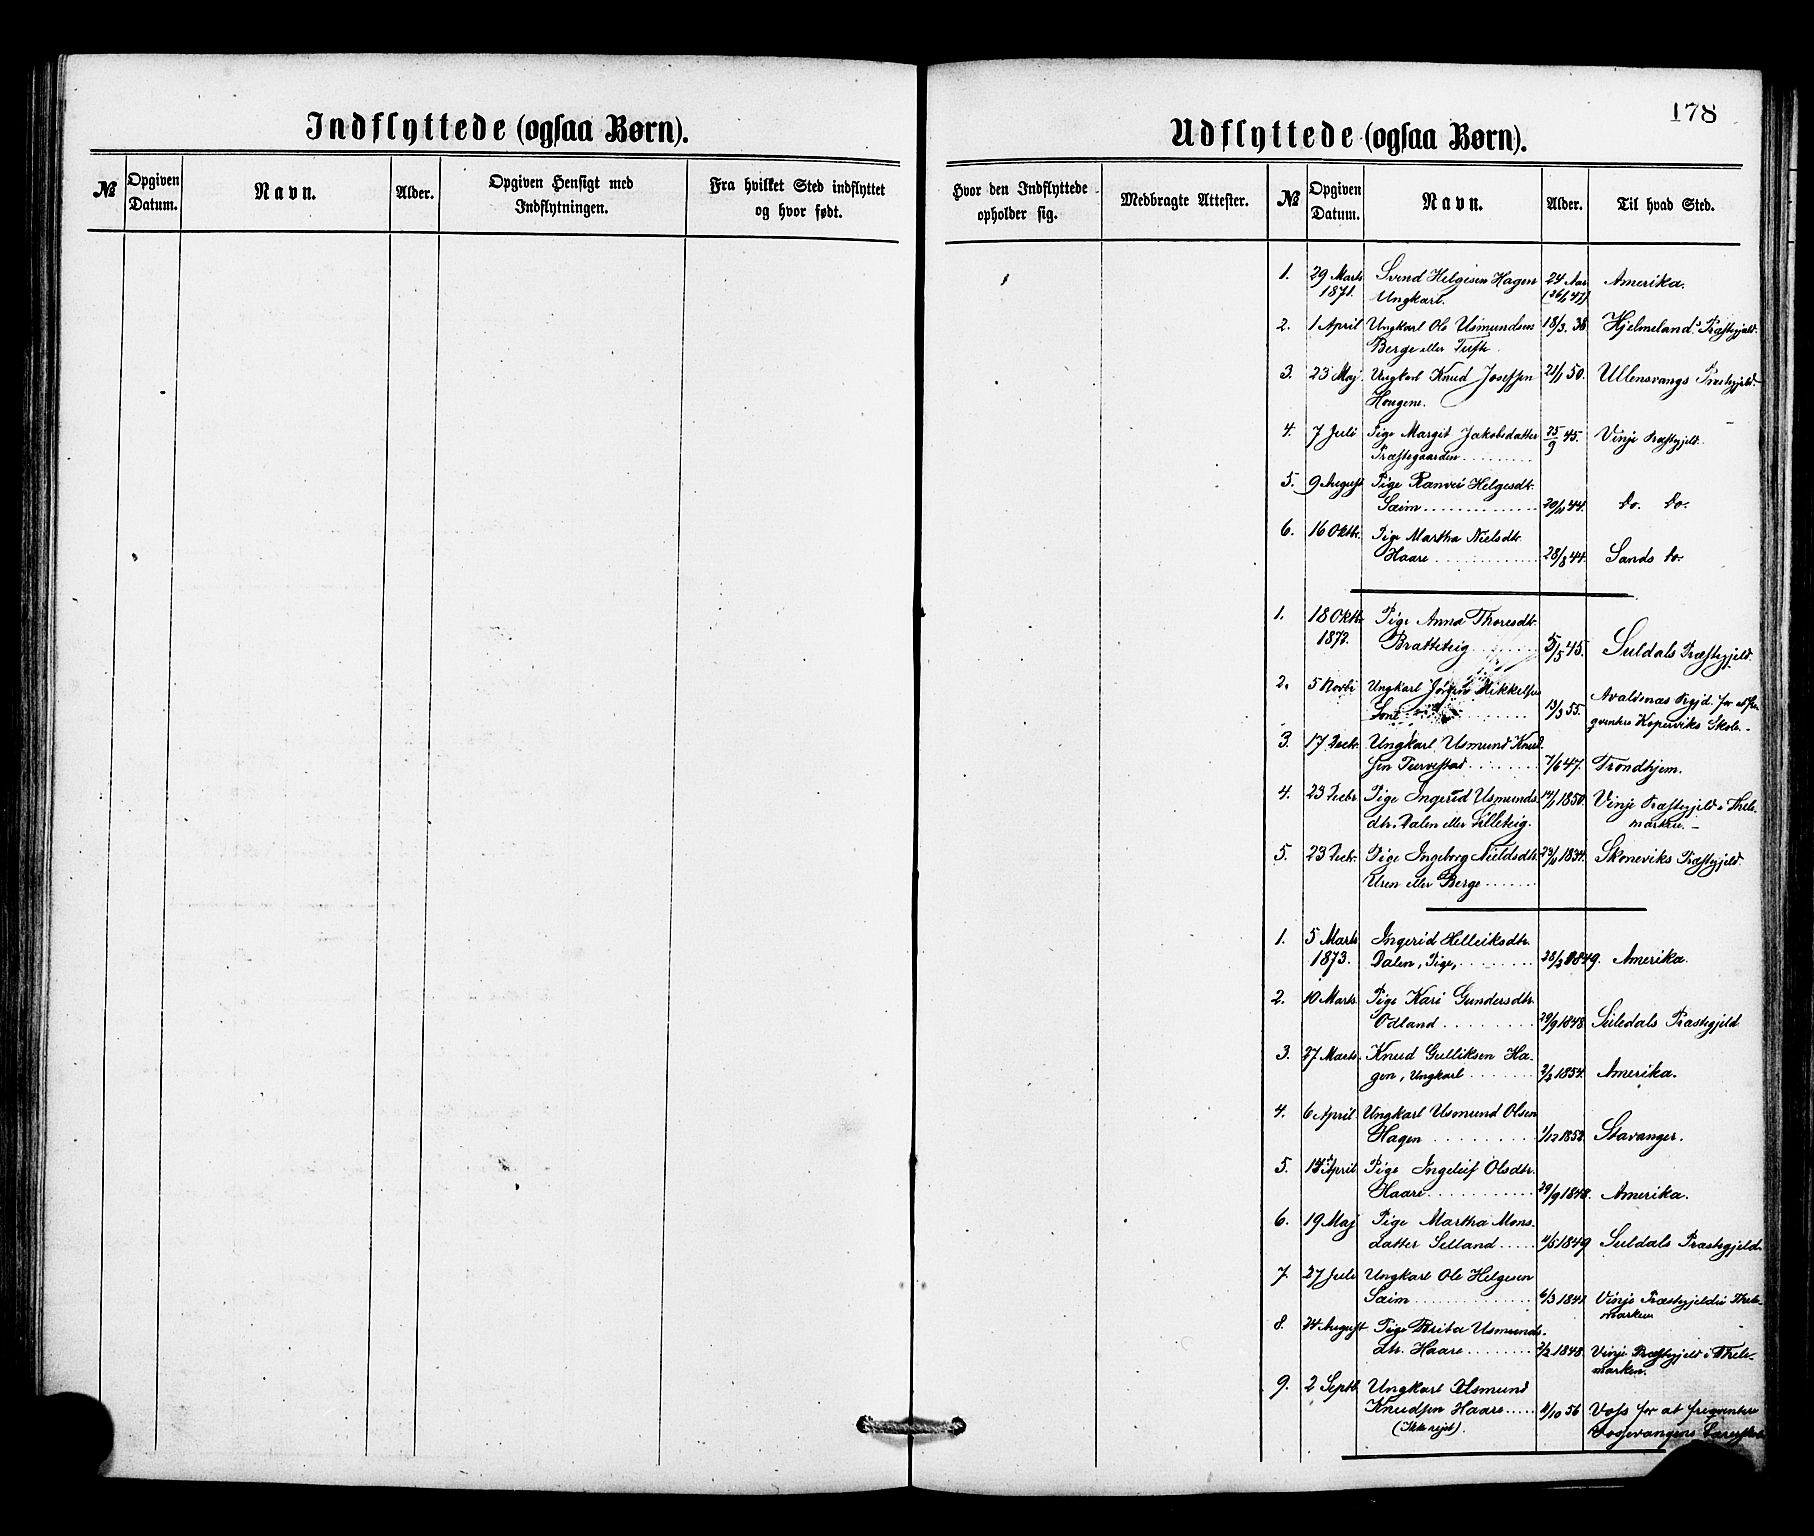 178
Indflyttede (ogsaa Børn).
№ Opgiven Datum. Navn. Alder. Opgiven Hensigt med Indflytningen. Fra hvilket Sted indflyttet og hvor født.
Udflyttede (ogsaa Børn).
Hvor den Indflyttede opholder sig. Medbragte Attester. № Opgiven Datum. Navn. Alder. Til hvad Sted.
1. 29 Marts Svend Helgesen Hagen 24 Aar Amerika.
1871. Ungkarl. (26/1 47)
2. 1 April Ungkarl Ole Usmundsen 18/3. 38 Hjelmelands Præstegjeld.
Berge eller Tufte.
3. 23 Maj Ungkarl Knud Josefsen 21/1 50. Ullensvangs Præstegjeld.
Hougene.
4. 7 Juli Pige Margit Jakobsdatter 25/9 45. Vinje Præstegjeld.
Præstegaarden
5. 9 August Pige Ranvei Helgesdtr.
Saim 44. do. do.
6. 16 Oktbr. Pige Martha Nielsdtr.
Haare 28/8 44. Sands do.
1. 18 Oktbr. Pige Anna Thoresdtr.
1872. Bratteteig 5/5 45. Suldals Præstegjeld.
2. 5 Novbr Ungkarl Mikkelsen 13/3 55. Avaldsnæs Pgjd. for at fre-
qventere Koperviks Skole.
3. 17 Decbr. Ungkarl Usmund Knud-
sen 7/6 47. Trondhjem.
4. 23 Decbr. Pige Ingerid Usmunds- 1850. Vinje Præstegjeld i Thele-
dtr. Dalen eller Lilleteig. marken.
5. 23 Decbr. Pige Ingeborg Nieldsdtr. 1834. Skoneviks Præstegjeld.
Uren eller Berge
1. 5 Marts Ingerid Helleiksdtr.
1873. Dalen, Pige, 28/2 1849. Amerika.
2. 10 Marts. Pige Kari Gundersdtr.
Odland 29/9 1848. Suledals Præstegjeld
3. 27 Marts. Knud Gulliksen Ha-
gen, Ungkarl 2/2 1854. Amerika.
4. 6 April. Ungkarl Usmund Olsen
Hagen 1/12 1853. Stavanger.
5. April Pige Ingeleif Olsdtr.
Haare 29/9 1848. Amerika.
6. 19 Maj Pige Martha Mons-
datter Selland 1849 Suldals Præstegjeld.
7 27 Juli Ungkarl Ole Helgesen
Saim 1841. Vinje Præstegjeld i Thele-
marken
8. 24 August Pige Brita Usmunds-
dtr. Haare 2/2 1848. Vinje Præstegjeld i Thele-
marken.
9. 2 Septb. Ungkarl Usmund
Knudsen Haare 56 Voss for at freqventere
(Ikke rejst). Vossevangens